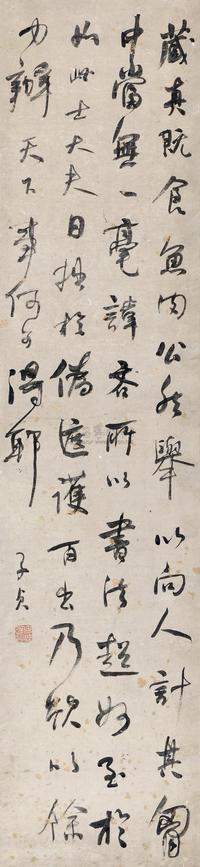 藏真既食魚肉公然舉以向人計其胸
中當無一毫諱吝所以書法超妙至於
如此士大夫日拙於偽遮護百出乃欲以餘
力辦天下事何可得耶
子貞